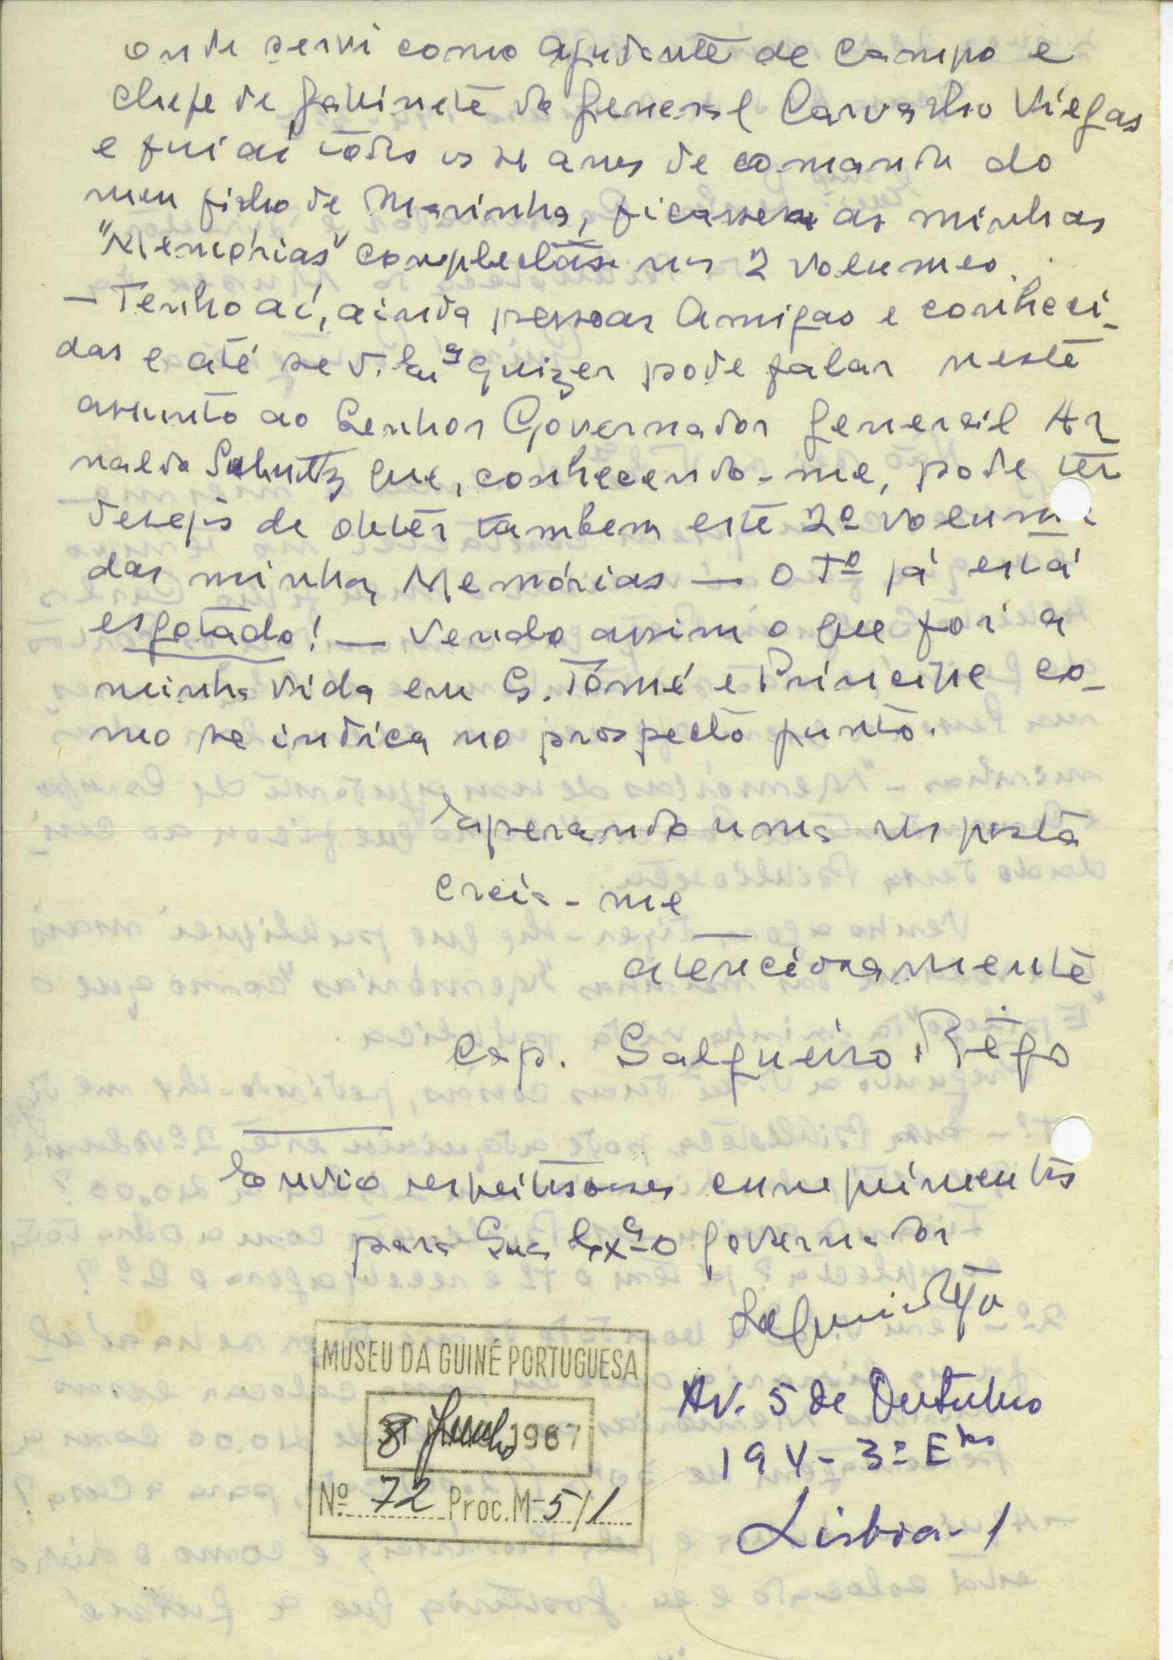 onde servi como Ajudante de Campo e
chefe de gabinete do general Carvalho Viegas
e fui aí todos os anos de comando do
meu filho de Marinha, ficassem as minhas
"Memórias" completas nos 2 volumes.
— Tenho aí, ainda pessoas Amigas e conheci-
das e até se V. Exª quizer pode falar neste
assunto ao Senhor Governador general Ar
naldo Schultz que, conhecendo-me, pode ter
desejos de obter tambem este 2º volume
das minhas Memórias — o 1º já está
esgotado! — Vendo assim o que foi a
minha vida em S. Tomé e Príncipe co-
mo se indica no prospecto junto.
Esperando uma resposta
creia-me
atenciosamente
Cap. Salgueiro Rêgo
Envio respeitosos cumprimentos
para Sua Exª o governador
Salgueiro Rêgo
Av. 5 de Outubro
194 - 3º
Lisboa-1
MUSEU DA GUINÉ PORTUGUESA
8 Junho 1967
Nº 72 Proc. M-5/1